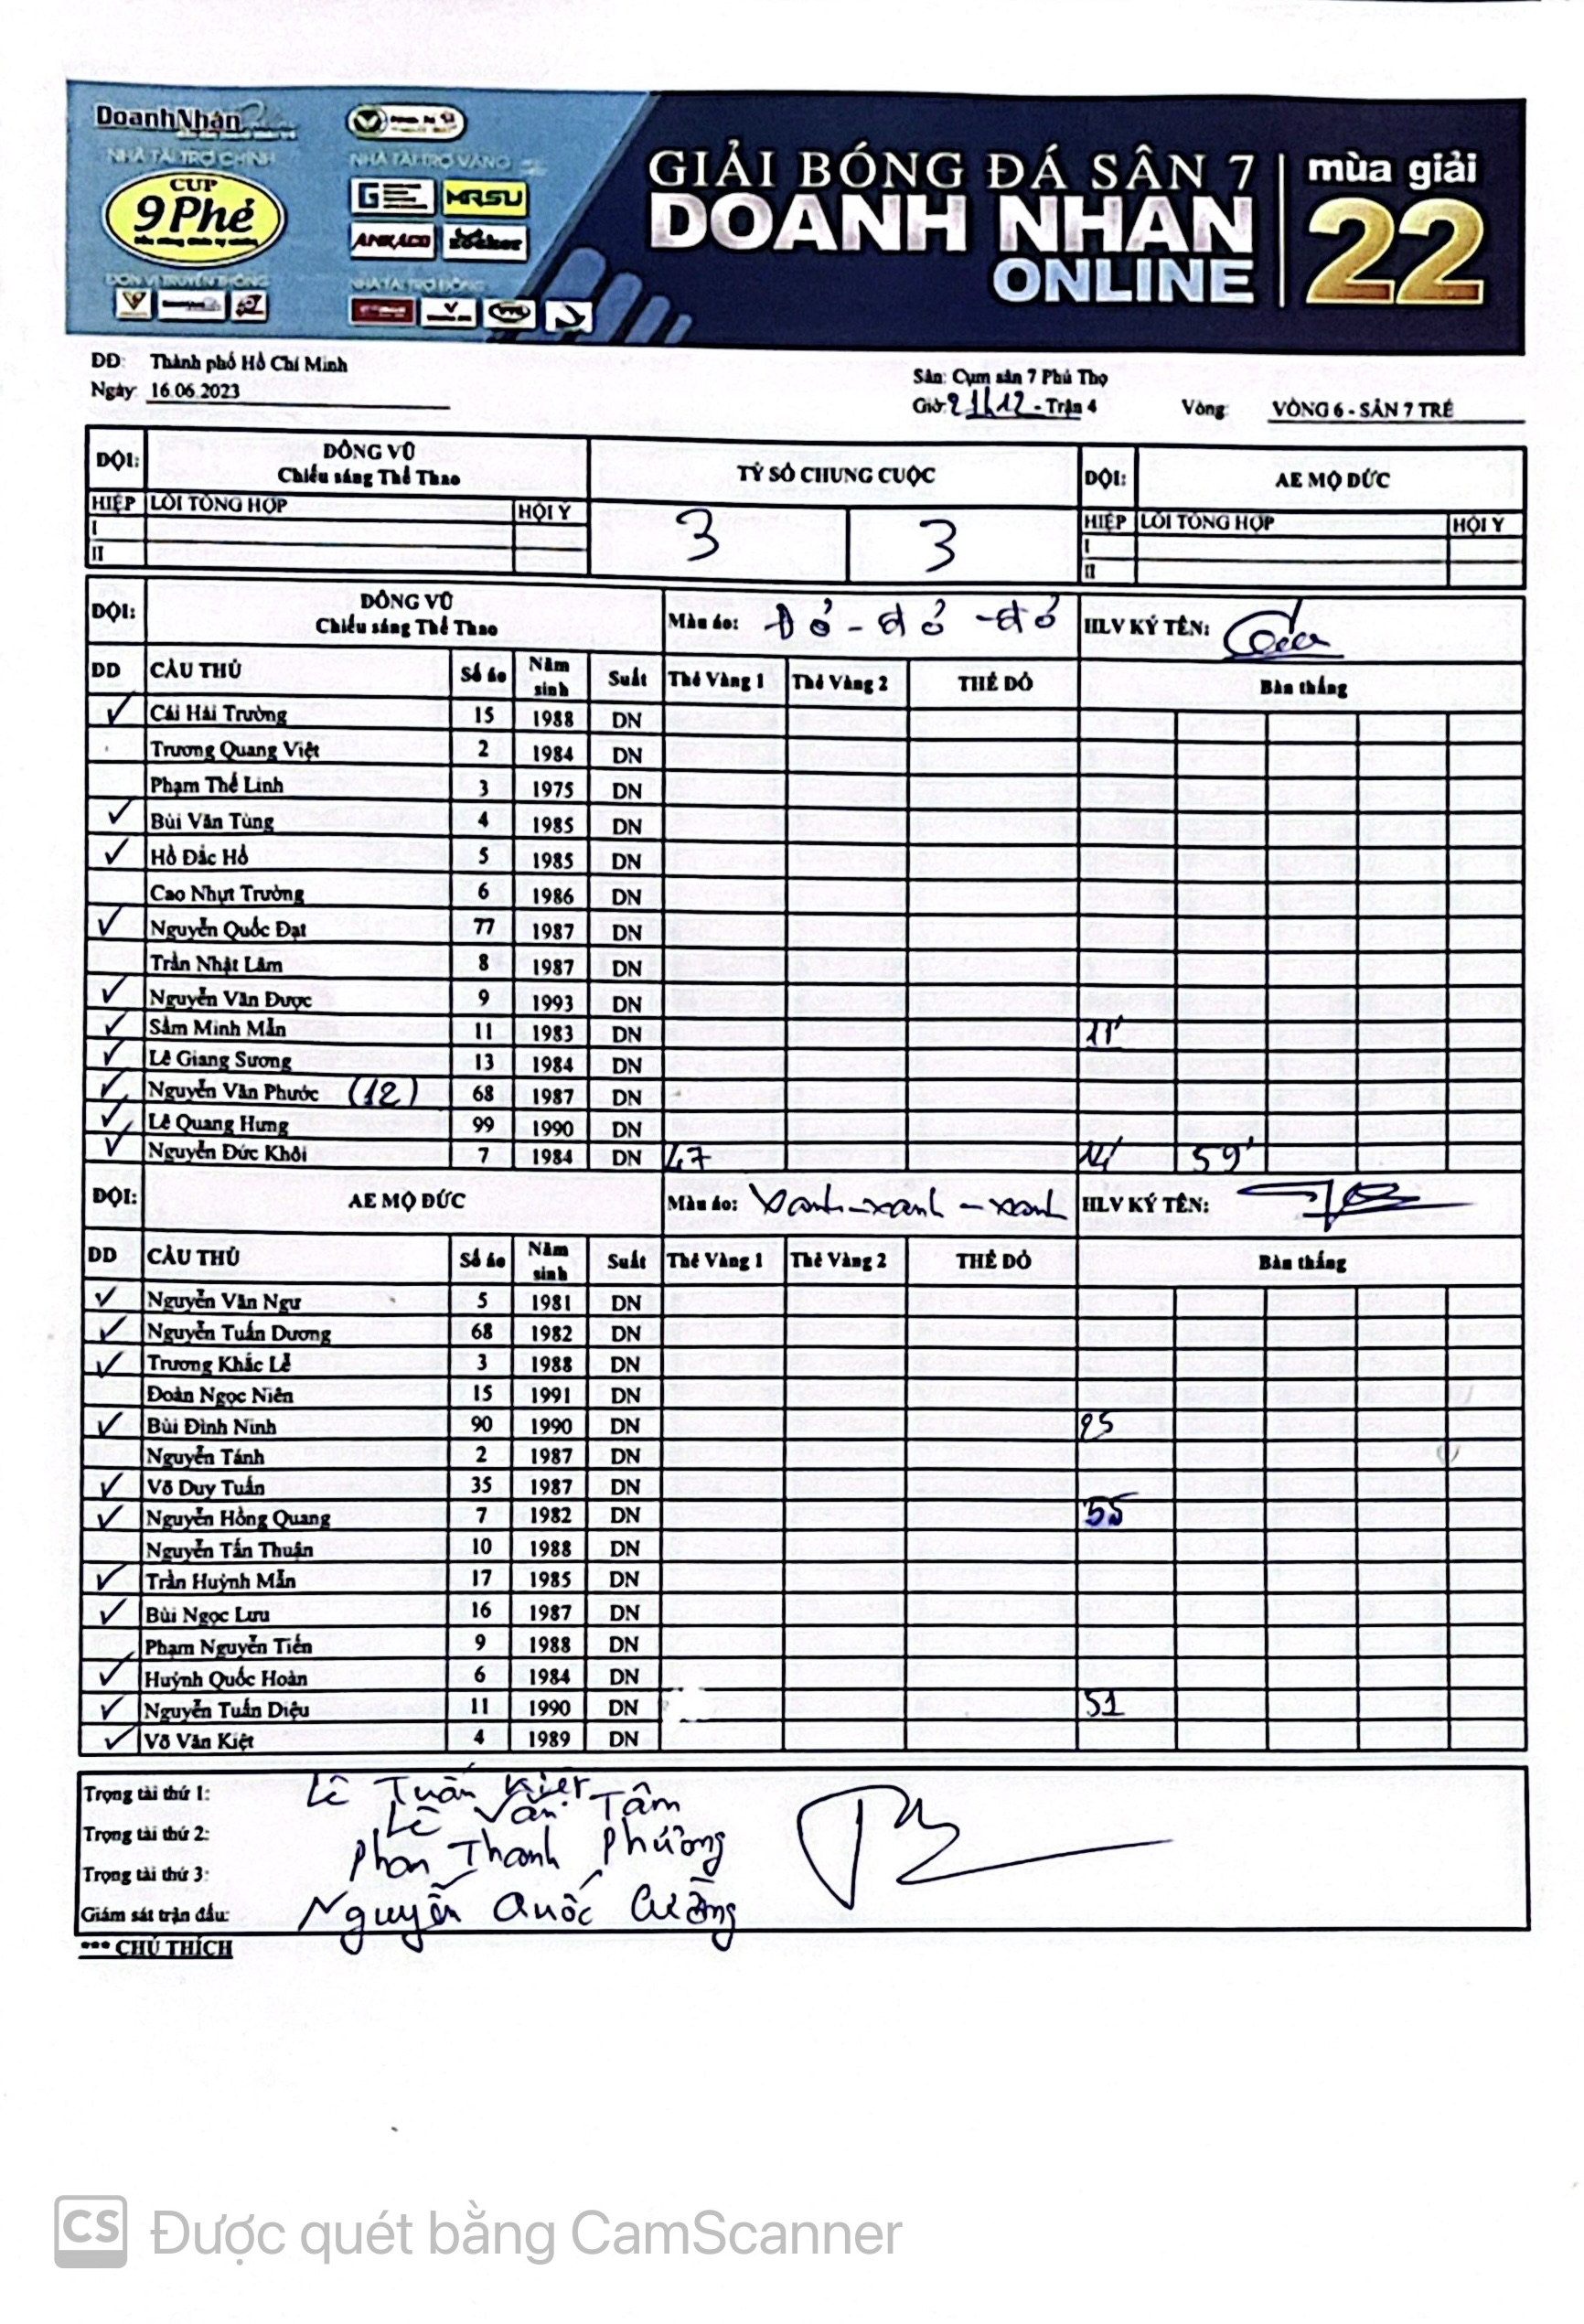 DoanhNhân
NHÀ TÀI TRỢ CHÍNH
NHÀ TÀI TRỢ VÀNG
CUP
9 Phẻ
MRSU
ANKACO
ĐƠN VỊ TRUYỀN THÔNG
NHÀ TÀI TRỢ ĐỒNG
GIẢI BÓNG ĐÁ SÂN 7
DOANH NHÂN
ONLINE
mùa giải
22
DĐ: Thành phố Hồ Chí Minh
Ngày: 16.06.2023
Sân: Cụm sân 7 Phú Thọ
Giờ: 21h12 - Trận 4 Vòng: VÒNG 6 - SÂN 7 TRẺ
ĐỘI: ĐÔNG VŨ Chiếu sáng Thể Thao TỶ SỐ CHUNG CUỘC ĐỘI: AE MỘ ĐỨC
HIỆP LỖI TỔNG HỢP HỘI Ý 3 3 HIỆP LỖI TỔNG HỢP HỘI Ý
I I
II II
ĐỘI: ĐÔNG VŨ Chiếu sáng Thể Thao Màu áo: Đỏ - đỏ - đỏ HLV KÝ TÊN:
DD CẦU THỦ Số áo Năm sinh Suất Thẻ Vàng 1 Thẻ Vàng 2 THẺ ĐỎ Bàn thắng
✓ Cái Hải Trường 15 1988 DN
Trương Quang Việt 2 1984 DN
Phạm Thế Linh 3 1975 DN
✓ Bùi Văn Tùng 4 1985 DN
✓ Hồ Đắc Hồ 5 1985 DN
Cao Nhựt Trường 6 1986 DN
✓ Nguyễn Quốc Đạt 77 1987 DN
Trần Nhật Lâm 8 1987 DN
✓ Nguyễn Văn Được 9 1993 DN
✓ Sầm Minh Mẫn 11 1983 DN 11'
✓ Lê Giang Sương 13 1984 DN
✓ Nguyễn Văn Phước (12) 68 1987 DN
✓ Lê Quang Hưng 99 1990 DN
✓ Nguyễn Đức Khôi 7 1984 DN 47 14' 59'
ĐỘI: AE MỘ ĐỨC Màu áo: Xanh - xanh - xanh HLV KÝ TÊN:
DD CẦU THỦ Số áo Năm sinh Suất Thẻ Vàng 1 Thẻ Vàng 2 THẺ ĐỎ Bàn thắng
✓ Nguyễn Văn Ngư 5 1981 DN
✓ Nguyễn Tuấn Dương 68 1982 DN
✓ Trương Khắc Lễ 3 1988 DN
Đoàn Ngọc Niên 15 1991 DN
✓ Bùi Đình Ninh 90 1990 DN 25
Nguyễn Tánh 2 1987 DN
✓ Võ Duy Tuấn 35 1987 DN
✓ Nguyễn Hồng Quang 7 1982 DN 55
Nguyễn Tấn Thuận 10 1988 DN
✓ Trần Huỳnh Mẫn 17 1985 DN
✓ Bùi Ngọc Lưu 16 1987 DN
Phạm Nguyễn Tiến 9 1988 DN
✓ Huỳnh Quốc Hoàn 6 1984 DN
✓ Nguyễn Tuấn Diệu 11 1990 DN 51
✓ Võ Văn Kiệt 4 1989 DN
Trọng tài thứ 1: Lê Tuấn Kiệt
Trọng tài thứ 2: Lê Văn Tâm
Trọng tài thứ 3: Phan Thanh Phương
Giám sát trận đấu: Nguyễn Quốc Cường
*** CHÚ THÍCH
CS Được quét bằng CamScanner